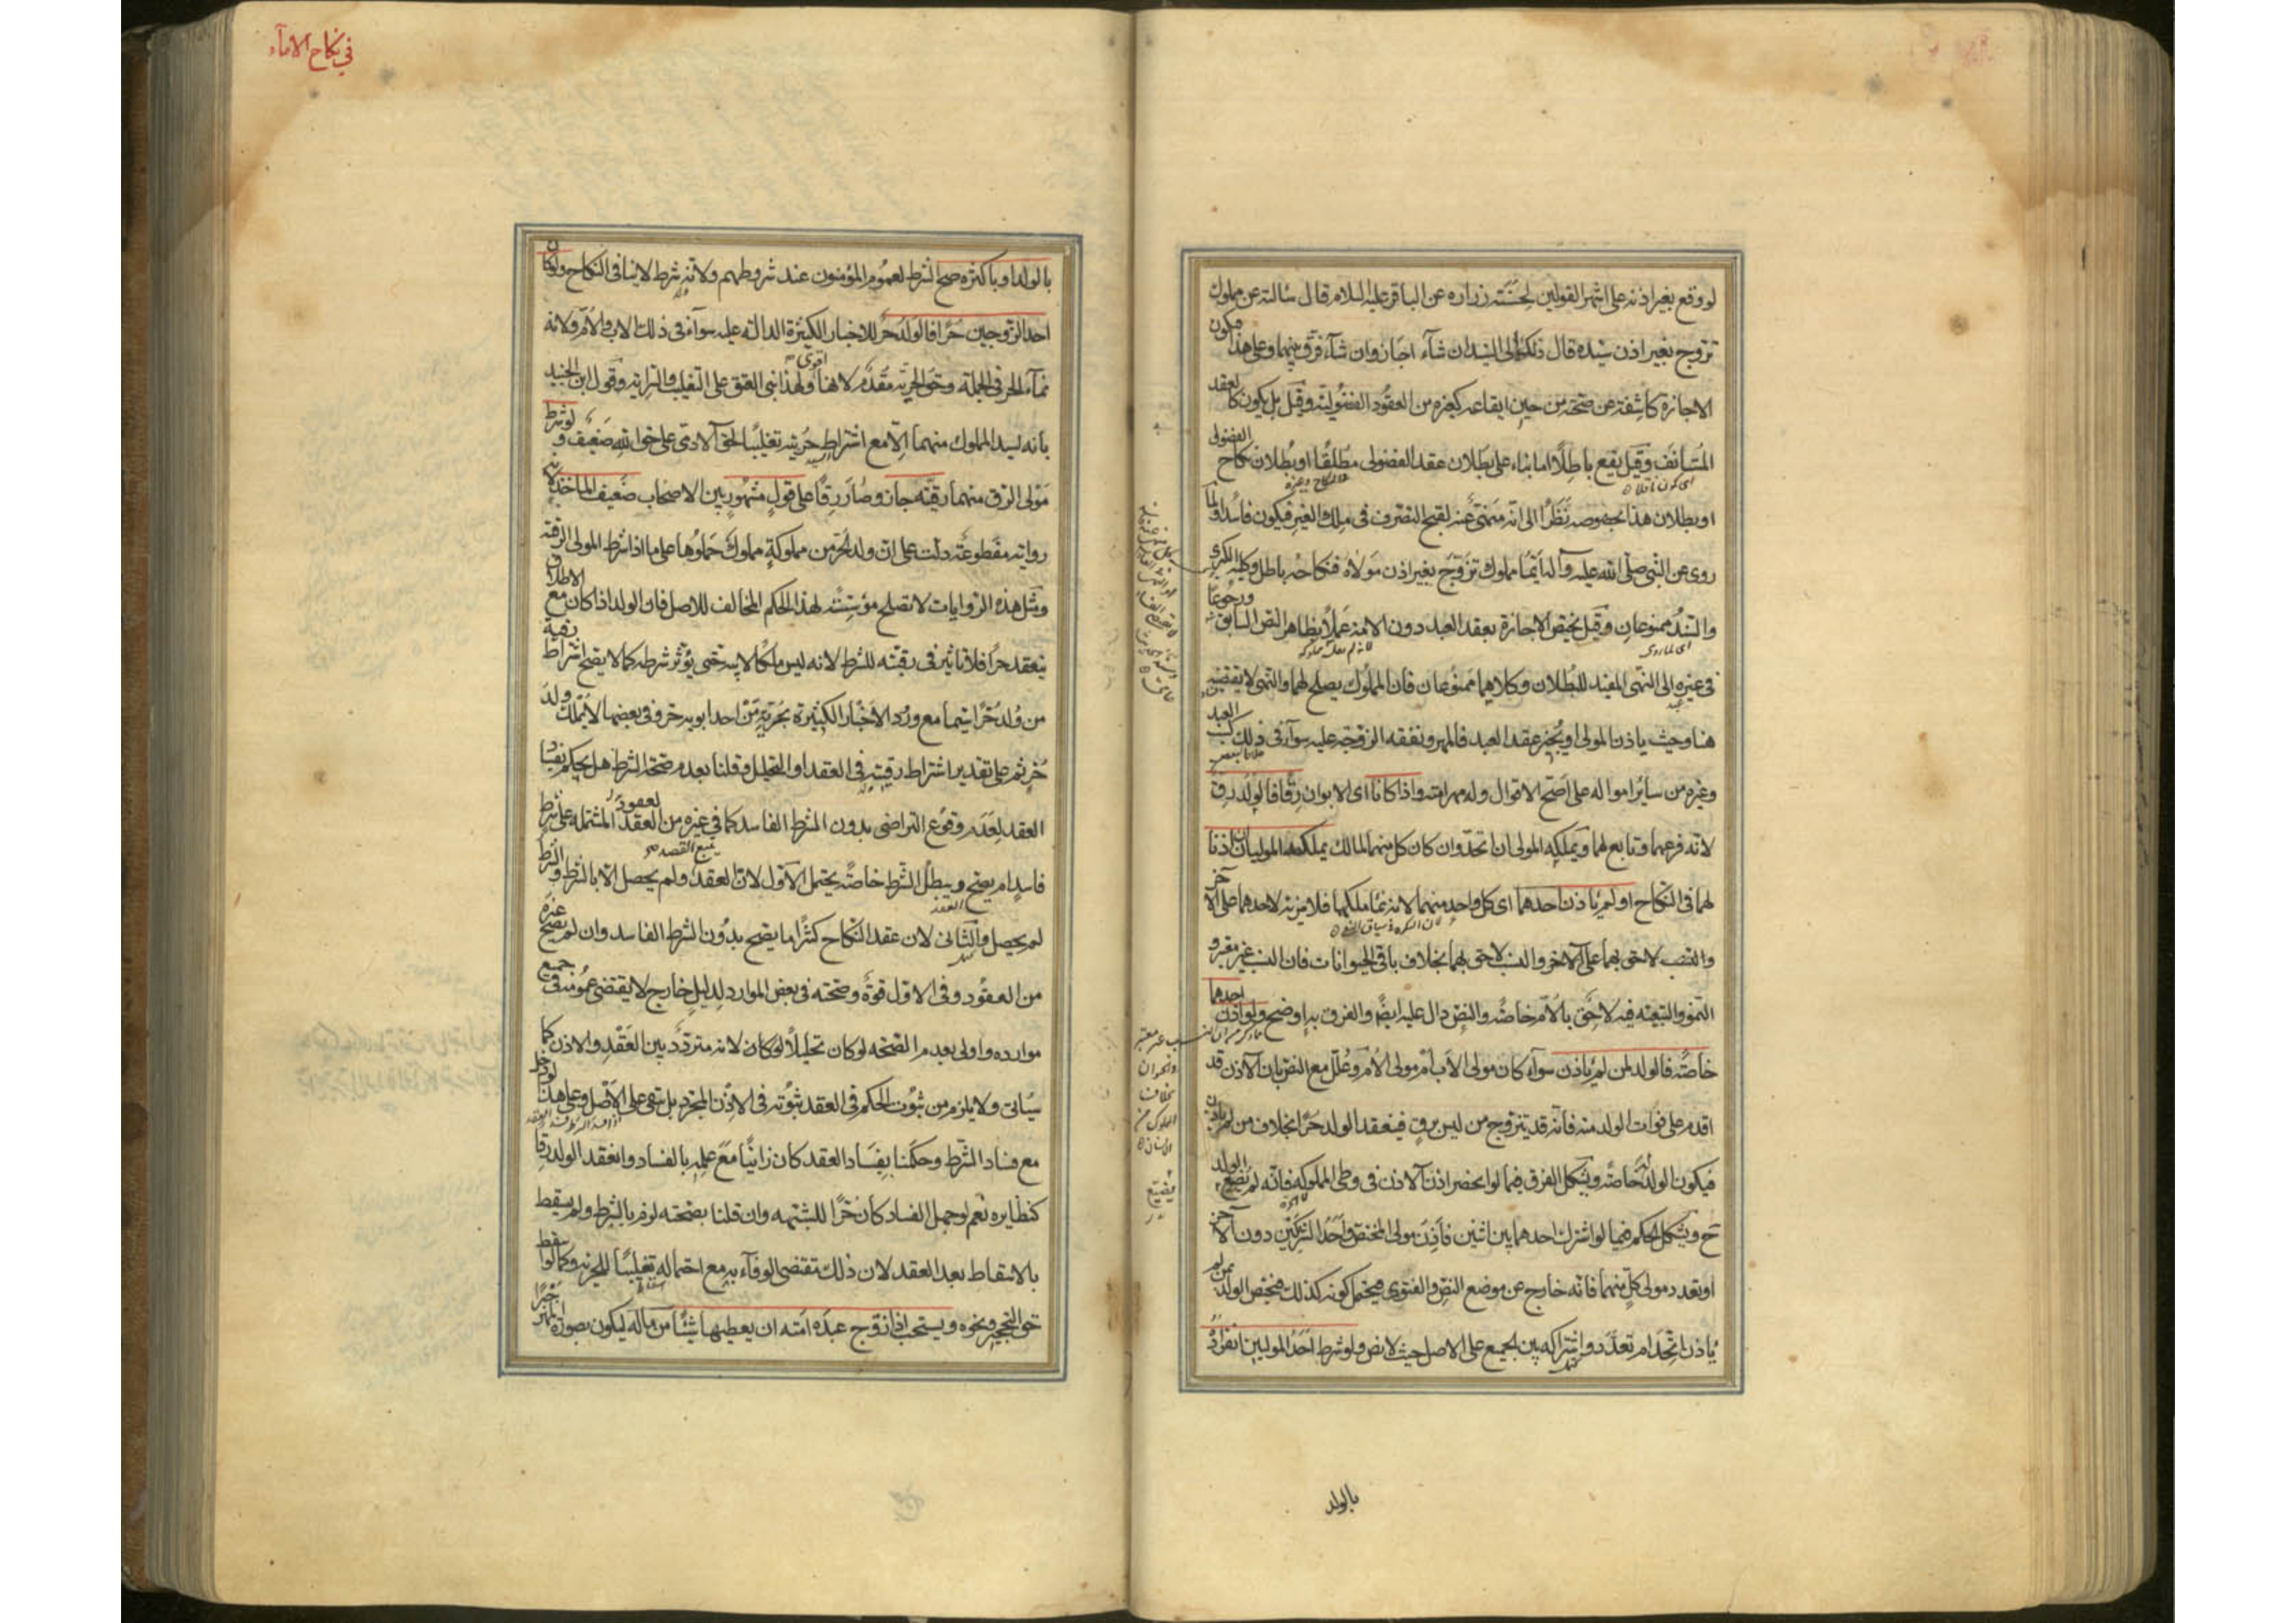 لو وقع بغير اذنه على اشهر القولين لحسنة زراره عن الباقر عليه السلام قال سالته عن مملوك
تزوج بغير اذن سيده قال ذلك الى السيد ان شآء اجاز وان شآء فرق بينهما وعلى هذا فتكون
الاجازة كاشفة عن صحته من حين ايقاعه كغيره من العقود الفضولية وقيل بل يكون كالعقد
المستانف وقيل يقع باطلا اما بناء على بطلان عقد الفضولى مطلقا او بطلان نكاح الفضولى
او بطلان هذا بخصوصه نظرا الى انه منهى عنه لقبح التصرف فى ملك الغير فيكون فاسدا ولما
روى عن النبى صلى الله عليه وآله ايما مملوك تزوج بغير اذن مولاه فنكاحه باطل وكلية الكبرى
والسند ممنوعان وقيل تختص الاجازة بعقد العبد دون الامة عملا بظاهر النص السابق ورجوعا
فى غيره الى النهى المفيد للبطلان وكلاهما ممنوعان فان المملوك يصلح لهما والنهى لا يقتضيه
هنا وحيث ياذن المولى او يجيز عقد العبد فالمهر ونفقه الزوجة عليه سوآء فى ذلك كسب العبد
وغيره من سائر امواله على اصح الاقوال وله مهر امته واذا كانا اى الابوان رقا فالولد رق
لانه فرعهما وتابع لهما ويملكه المولى ان اتحد وان كان كل منهما لمالك يملكه الموليان ان اذنا
لهما فى النكاح او لم ياذن احدهما اى كل واحد منهما لانه نماء ملكهما فلا مزية لاحدهما على الآخر
والنسب لاحق بهما على الآخر والنسب لاحق بهما بخلاف باقى الحيوانات فان النسب غير معتبر و
النمو والتبعية فيه لاحق بالام خاصة والنص دال عليه ايضا والفرق به اوضح ولو اذن احدهما
خاصة فالولد لمن لم ياذن سوآء كان مولى الاب ام مولى الام وعلل مع النص بان الآذن قد
اقدم على فوات الولد منه فانه قد يتزوج من ليس برق فينعقد الولد حرا بخلاف من لم ياذن
فيكون الولد له خاصة ويشكل الفرق فيما لو انحصر اذن الآذن فى وطى المملوكه فانه لم يضيع الولد
ح ويشكل الحكم فيما لو اشترك احدهما بين اثنين فاذن مولى المختص واحد الشريكين دون الآخر
او تعدد مولى كل منهما فانه خارج عن موضع النص والفتوى فيحتمل كونه كذلك فيختص الولد بمن لم
ياذن اتحد ام تعدد واشتراكه بين الجميع على الاصل حيث لا نص ولو شرط احد الموليين انفراده
بالولد
فى نكاح الامآء
بالولد او باكثره صح الشرط لعموم المؤمنون عند شروطهم ولانه شرط لا ينافى النكاح ولو كان
احد الزوجين حرا فالولد حر للاخبار الكثيرة الدالة عليه سوآء فى ذلك الاب والام ولانه
نمآء الحر فى الجملة وحق الحرية مقدم لانها اقوى ولهذا بنى العتق على التغليب والسراية وقول ابن الجنيد
بانه لسيد المملوك منهما الا مع اشتراط حريته تغليبا لحق الآدمى على حق الله ضعيف ولو شرط
مولى الرق منهما رقيته جاز وصار رقا على قول مشهور بين الاصحاب ضعيف الماخذ لانه
رواية مقطوعة دلت على ان ولد الحر من مملوكة مملوك حملوها على ما اذا شرط المولى الرقية
ومثل هذه الروايات لا تصلح مؤسسة لهذا الحكم المخالف للاصل فان الولد اذا كان مع الاطلاق
ينعقد حرا فلا تاثير فى رقيته للشرط لانه ليس ملكا لابيه حتى يؤثر شرطه كما لا يصح اشتراط رقية
من ولد حرا سيما مع ورود الاخبار الكثيرة بحرية من احد ابويه حر وفى بعضها لا يملك ولد
حر ثم على تقدير اشتراط رقيته فى العقد او التحليل وقلنا بعدم صحة الشرط هل يحكم بفساد
العقد لعدم وقوع التراضى بدون الشرط الفاسد كما فى غيره من العقود المشتملة على شرط
فاسد ام يصح ويبطل الشرط خاصة يحتمل الاول لان العقد يتبع القصد ولم يحصل الا بالشرط والشرط
لم يحصل والثانى لان عقد النكاح كثيرا ما يصح بدون الشرط الفاسد وان لم يصح غيره
من العقود وفى الاول قوة وصحته فى بعض الموارد لدليل خارج لا يقتضى عمومه فى جميع
موارده واولى بعدم الصحه لو كان تحليلا لو كان لانه متردد بين العقد والاذن كما
سياتى ولا يلزم من ثبوت الحكم فى العقد ثبوته فى الاذن المجرد بل تبقى على الاصل وعلى هذا لو دخل
مع فساد الشرط وحكمنا بفساد العقد كان زانيا مع علمه بالفساد وانعقد الولد رقا
كنظايره نعم لو جهل الفساد كان حرا للشبهه وان قلنا بصحته لزم بالشرط ولم يسقط
بالاسقاط بعد العقد لان ذلك مقتضى الوفآء به مع احتماله تغليبا للحرية وكما لو اسقط
حق التحجير ونحوه ويستحب اذا زوج عبده امته ان يعطيها شيئا من ماله ليكون بصورة المهر جبرا